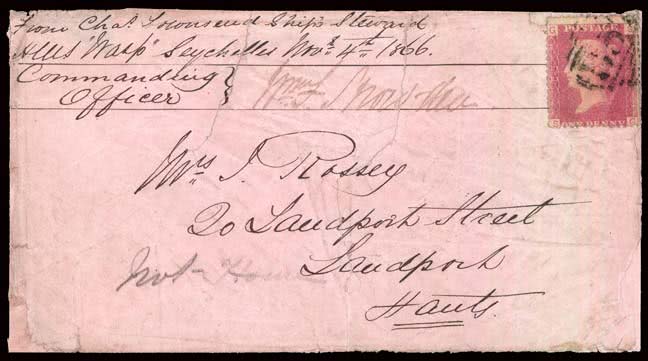 From Chas. Townsend Ship's Steward
HMS "Wasp" Seychelles Novr. 4th 1866.
Commanding
Officer
POSTAGE
ONE PENNY
G
G
Mrs. J. Rossey
20 Landport Street
Landport
Hants.
not